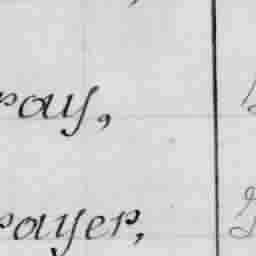 ray,
rayer,